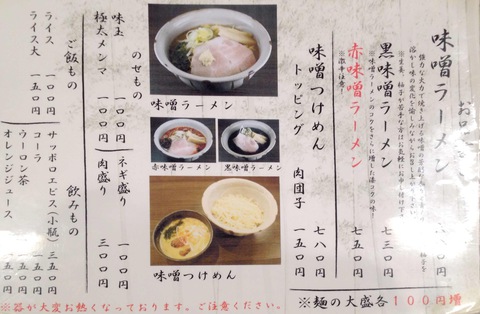 味噌ラーメン
※生姜、柚子が苦手な方はお気軽にお申し付け下さい。
黒味噌ラーメン 七三〇円
※味噌ラーメンのコクをさらに増した漆コクの味!
赤味噌ラーメン 七五〇円
※激辛注意!
味噌つけめん 七八〇円
トッピング 肉団子 一五〇円
※麺の大盛各100円増
味噌ラーメン
赤味噌ラーメン
黒味噌ラーメン
味噌つけめん
のせもの
味玉 一〇〇円
極太メンマ 一〇〇円
ネギ盛り 一〇〇円
肉盛り 三〇〇円
ご飯もの
ライス 一〇〇円
ライス大 一五〇円
飲みもの
サッポロエビス(小瓶) 三五〇円
コーラ 一五〇円
ウーロン茶 一五〇円
オレンジジュース 一五〇円
※器が大変お熱くなっております。ご注意ください。